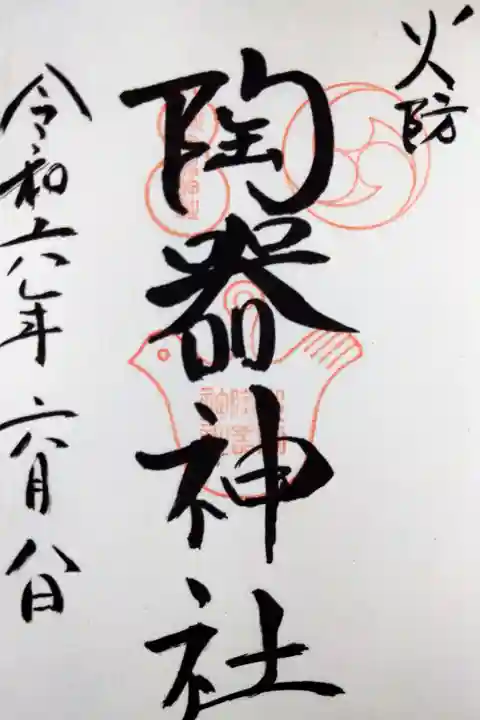 火防
陶器神社
令和六年六月八日